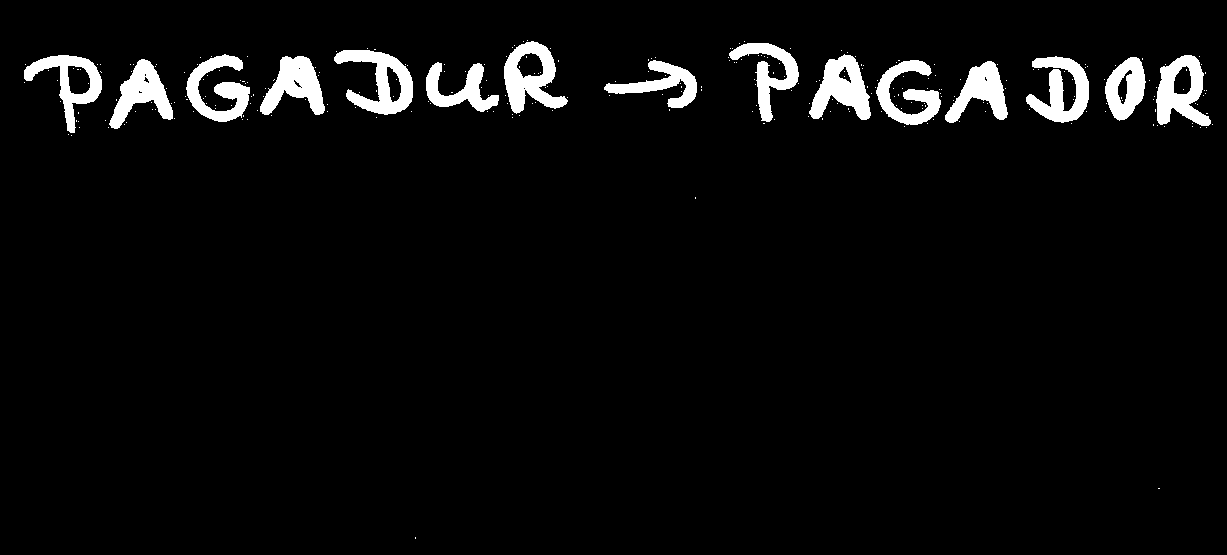 PAGADUR → PAGADOR